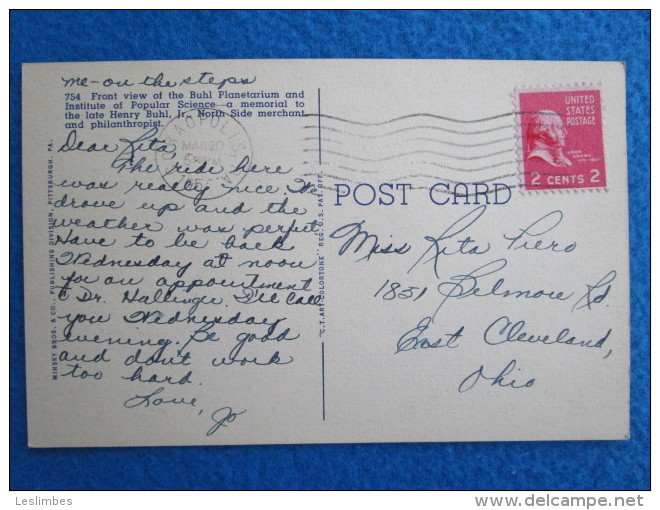 me-on the steps
754 Front view of the Buhl Planetarium and
Institute of Popular Science—a memorial to
the late Henry Buhl, Jr., North Side merchant
and philanthropist.
Dear Rita,
The ride here
was really nice. I
drove up and the
weather was perfect.
Have to be back
Wednesday at noon
for an appointment
c Dr. Hallinger. I'll call
you Wednesday
evening. Be good
and don't work
too hard.
Love, Jo
MINSKY BROS. & CO., PUBLISHING DIVISION, PITTSBURGH, PA.
"C.T. ART-COLORTONE" REG. U.S. PAT. OFF.
CORAOPOLIS, PA.
MAR 20
5 PM
POST CARD
UNITED
STATES
POSTAGE
JOHN
ADAMS
2 CENTS 2
Miss Rita Piero
1851 Belmore Rd.
East Cleveland,
Ohio
Leslimbes
http://www.delcampe.net